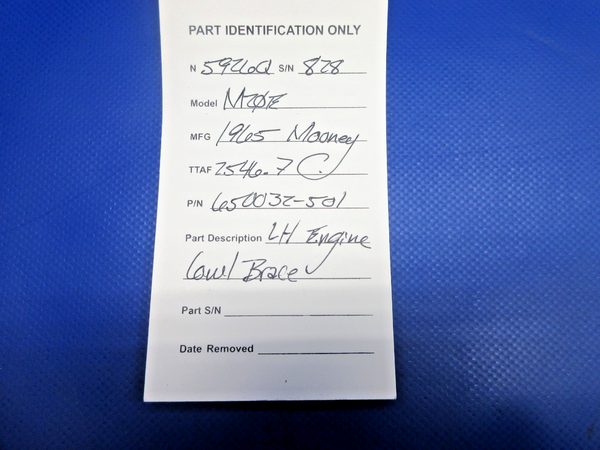 PART IDENTIFICATION ONLY
N 5926Q S/N 828
Model M20E
MFG 1965 Mooney
TTAF 2546.7
P/N 650032-501
Part Description LH Engine
Cowl Brace
Part S/N
Date Removed